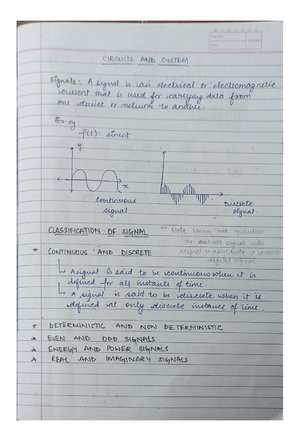 CIRCUITS AND SYSTEM
Signals : A signal is an electrical or electromagnetic
current that is used for carrying data from
one device or network to another.
For eg :
f(t) : sinωt
y
x
Continuous
signal
Discrete
signal
CLASSIFICATION OF SIGNAL
Note when we
the discrete signal
digital signal
* CONTINUOUS AND DISCRETE
A signal is said to be continuous when it is
defined for all instants of time.
A signal is said to be discrete when it is
defined at only discrete instants of time
* DETERMINISTIC AND NON DETERMINISTIC
* EVEN AND ODD SIGNALS
* ENERGY AND POWER SIGNALS
* REAL AND IMAGINARY SIGNALS